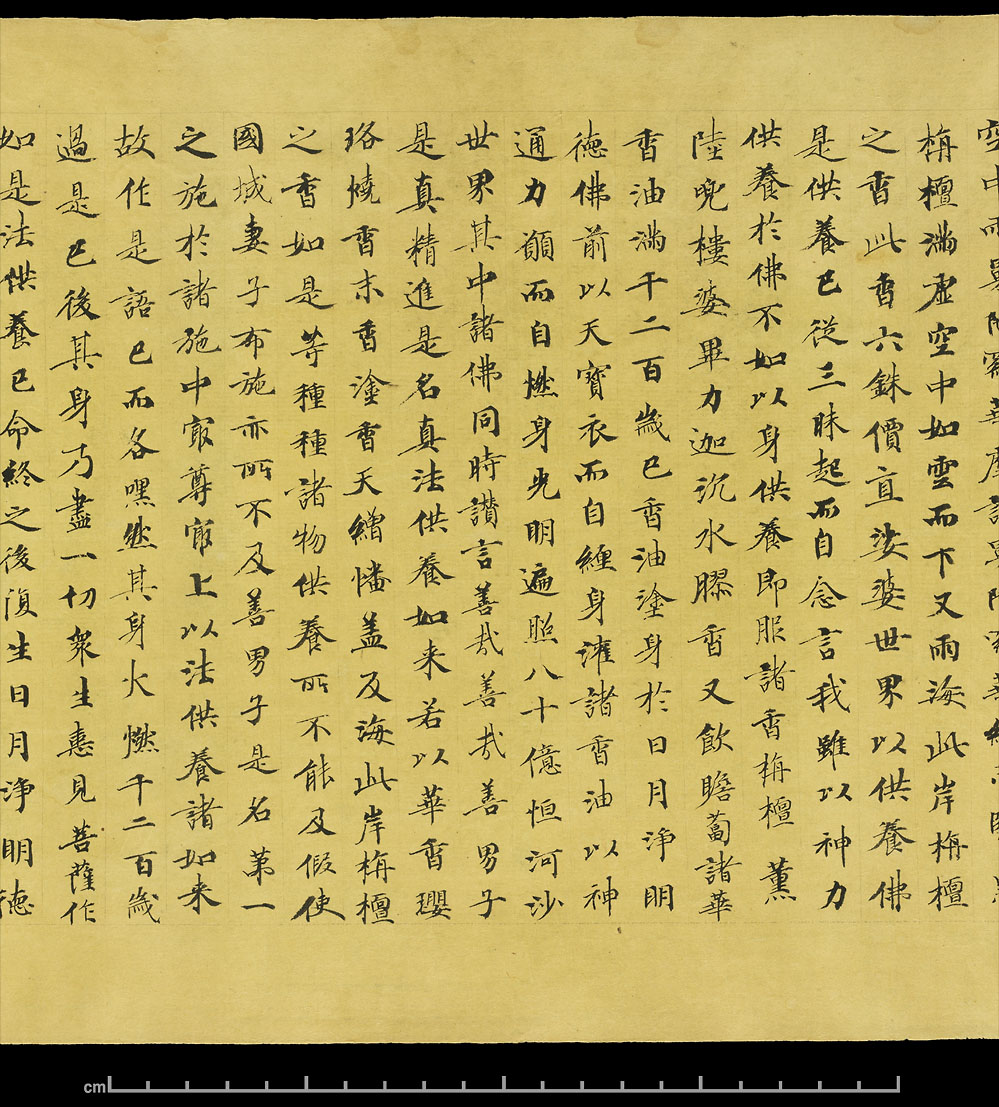 空中雨曼陀羅華摩訶曼陀羅華細末堅黑
栴檀滿虛空中如雲而下又雨海此岸栴檀
之香此香六銖價直娑婆世界以供養佛
是供養已從三昧起而自念言我雖以神力
供養於佛不如以身供養即服諸香栴檀薰
陸兜樓婆畢力迦沉水膠香又飲瞻蔔諸華
香油滿千二百歲已香油塗身於日月淨明
德佛前以天寶衣而自纏身灌諸香油以神
通力願而自燃身光明遍照八十億恒河沙
世界其中諸佛同時讃言善哉善哉善男子
是真精進是名真法供養如来若以華香瓔
珞燒香末香塗香天繒幡盖及海此岸栴檀
之香如是等種種諸物供養所不能及假使
國城妻子布施亦所不及善男子是名第一
之施於諸施中冣尊冣上以法供養諸如来
故作是語已而各嘿然其身火燃千二百歲
過是已後其身乃盡一切衆生憙見菩薩作
如是法供養已命終之後復生日月淨明德
cm